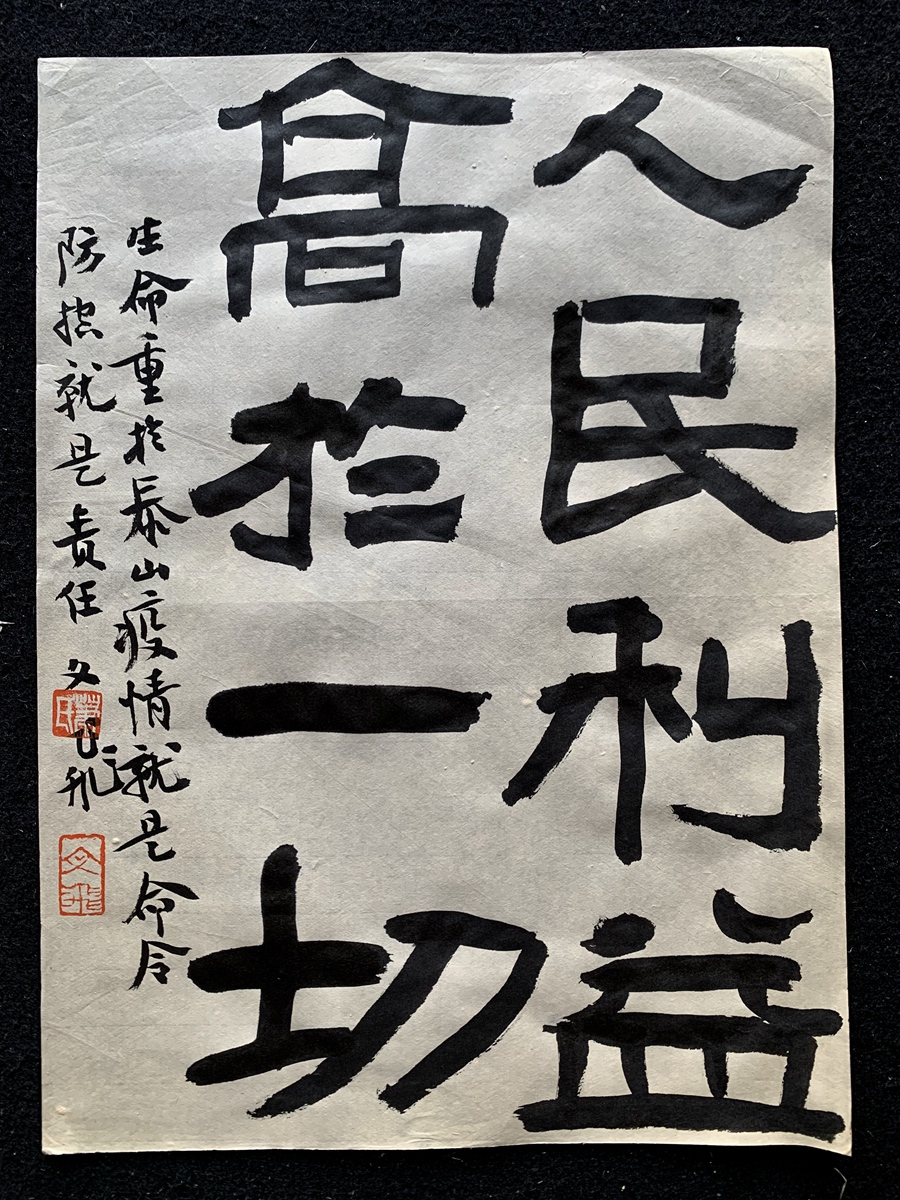 人民利益
高於一切
生命重於泰山疫情就是命令
防控就是责任 文飛
文飛